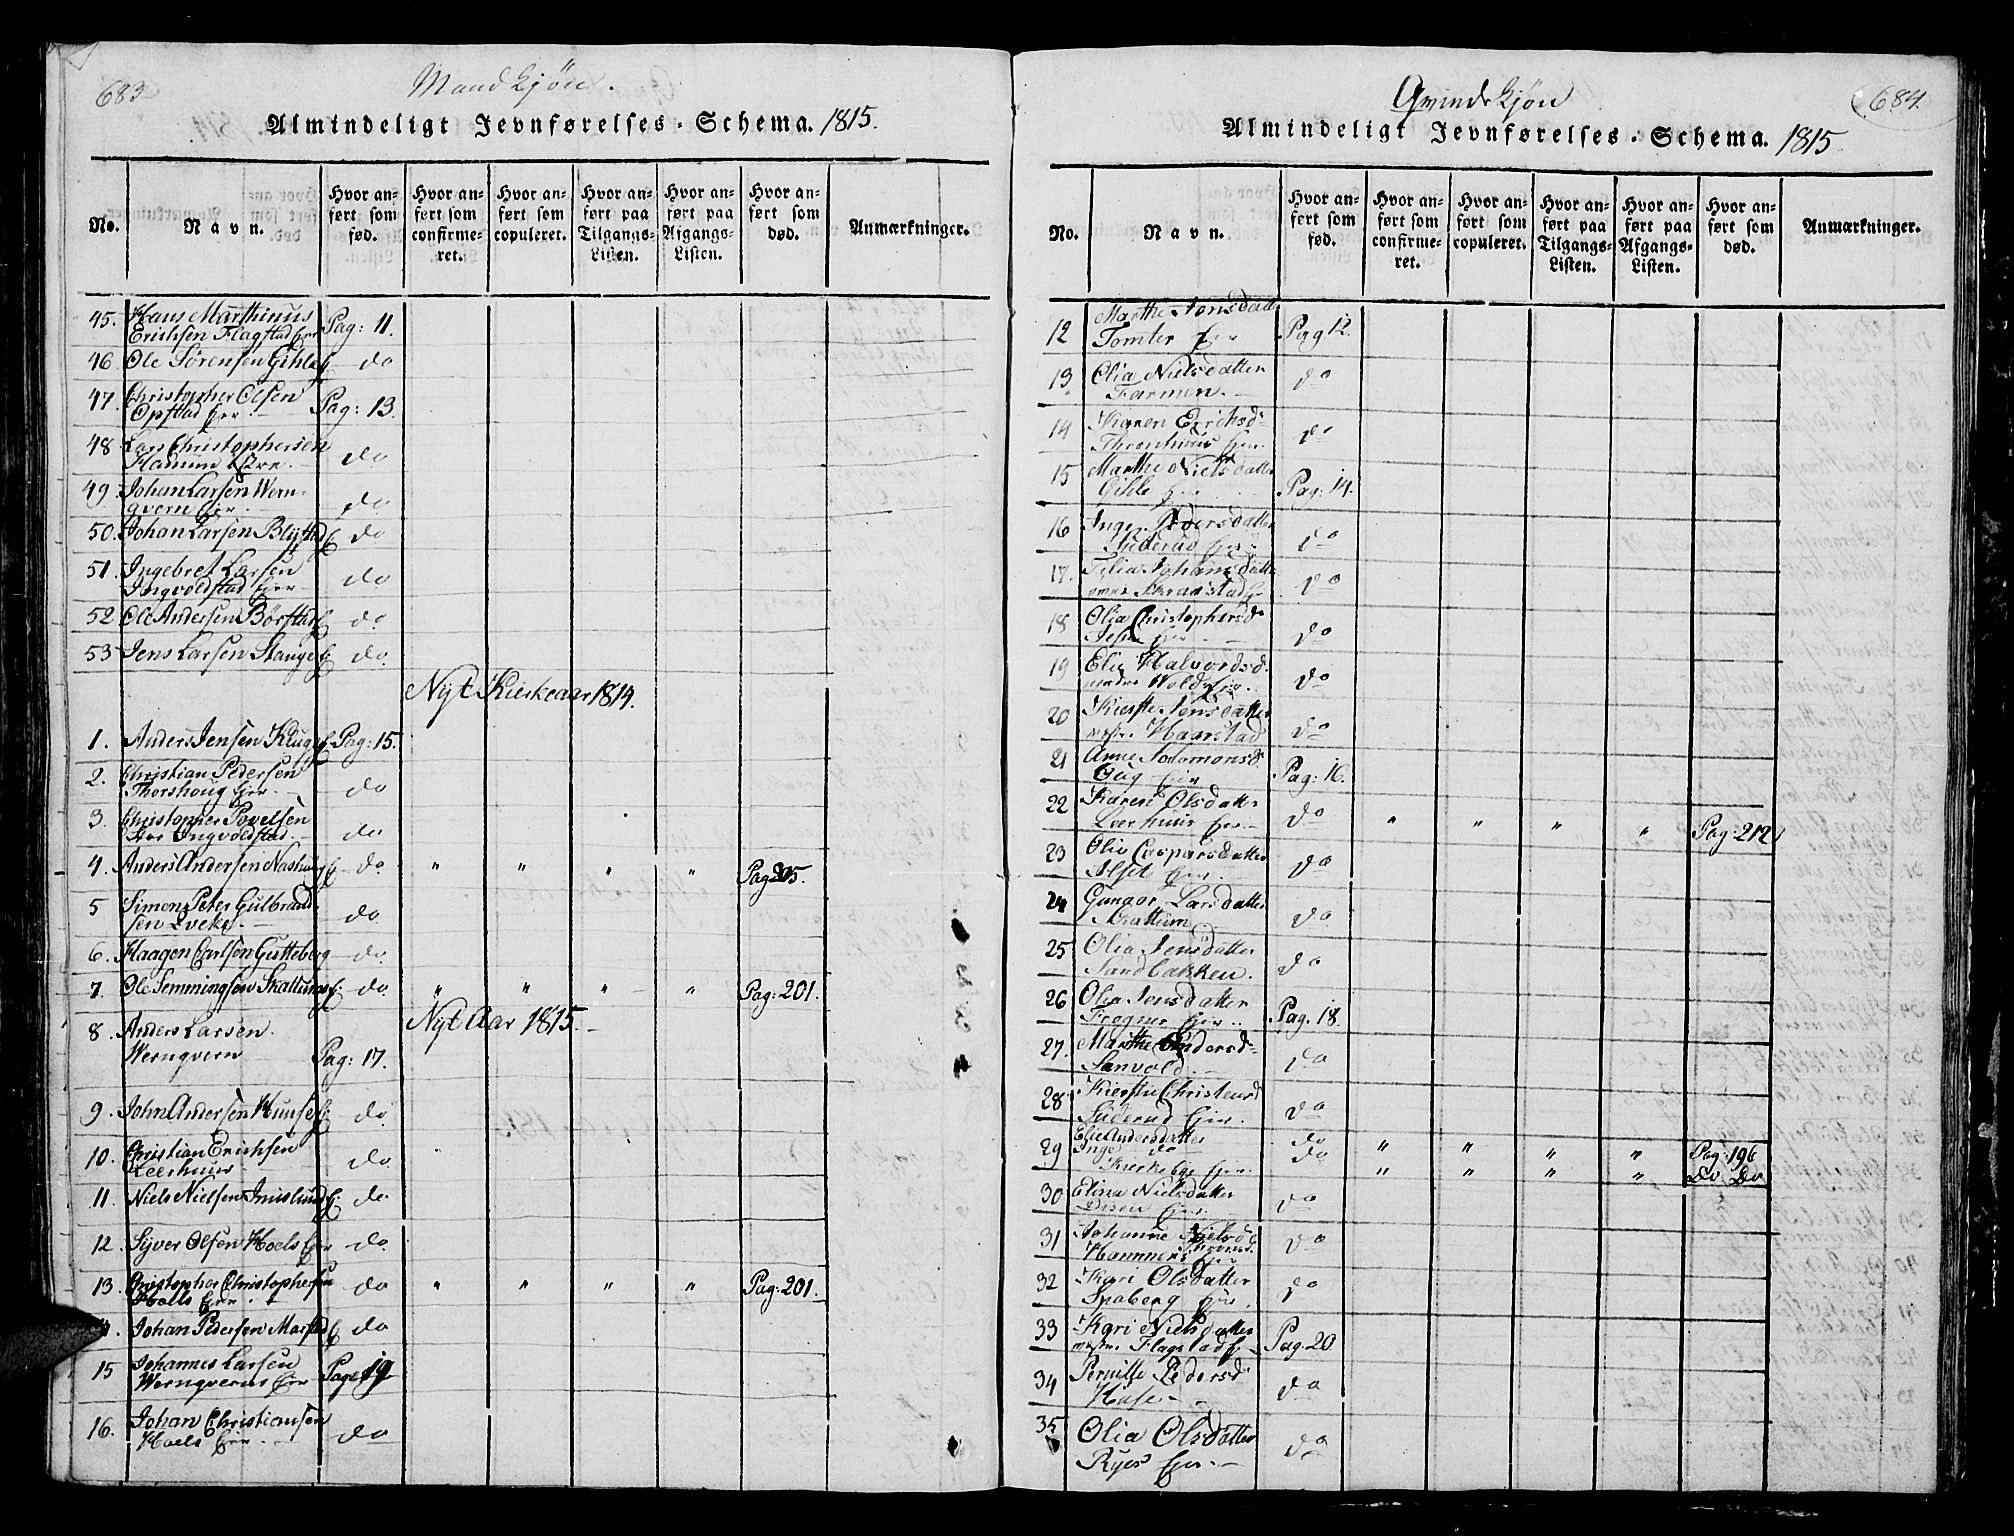 683
Mandkjøn.
Almindeligt Jevnførelses-Schema. 1815.
No.
Navn.
Hvor anført som fød.
Hvor anført som confirmeret.
Hvor anført som copuleret.
Hvor anført paa Tilgangs-Listen.
Hvor anført paa Afgangs-Listen.
Hvor anført som død.
Anmærkninger.
45. Hans Marthinus
Erichsen Flagstad Eier Pag: 11.
46 Ole Sørensen Gihle E do
47. Christopher Olsen
Opstad Eier. Pag: 13.
48 Lars Christophersen
Hammer do
49. Johan Larsen Wern-
gvern Eier. do
50. Johan Larsen Blystad E do
51. Ingebret Larsen
Ingvoldstad Eier do
52 Ole Andersen Børstad E do
53 Jens Larsen Stange E do.
Nyt Kirkeaar 1814.
1. Anders Jensen Kluge E. Pag: 15.
2. Christian Pedersen
Thorshoug Eier. do
3. Christopher Povelsen
Stor Ingvoldstad. do
4. Anders Andersen E do. " " " " Pag: 205.
5 Simon Peter Gulbrand-
sen do
6. Haagen Carlsen Gutteberg do.
7. Ole Semmingsen Skattums E. do. " " " " Pag: 201.
Nyt Aar 1815.
8 Anders Larsen.
Werngvern Pag: 17.
9. John Andersen Hunse E. do.
10. Christian Erichsen
Leerhuus. do
11. Niels Nielsen Imislund E. do.
12. Syver Olsen Hoels Eier do.
13. Christopher Christophersen
Hoels Eier. do " " " " Pag: 201.
Johan Pedersen E do
15 Johannes Larsen
Werngverns Eier Pag: 19
16. Johan Christiansen
Hoels Eier. do
684.
Qvindekjøn
Almindeligt Jevnførelses-Schema. 1815
No.
Navn.
Hvor anført som fød.
Hvor anført som confirmeret.
Hvor anført som copuleret.
Hvor anført paa Tilgangs-Listen.
Hvor anført paa Afgangs-Listen.
Hvor anført som død.
Anmærkninger.
12 Marthe Jensdatter
Tomter Eier Pag 12.
13. Olia Nielsdatter
Farmen. do
14 Karen Erichsd-
Eier. do
15 Marthe Nielsdatter
Gihle Eier Pag: 14.
16 Inger Pedersdatter
Süderud Eier. do
17. Johansdatter
do
18 Olia Christophersd-
Eier. do
19 Elie Halvorsd.
do
20 Kierste Jensdatter
Haarstad do
21 Anne Salomonsd.
Eier Pag: 16.
22 Karen Olsdatter
Leerhuus Eier. do " " " " Pag: 212
23 Olia Caspersdatter
Alset Eier. do
24 Gunnor Larsdatter
Skattum do
25 Olia Jensdatter
Sandbakken. do
26 Olia Jensdatter
Frogner Eier. Pag. 18.
27. Marthe Andersd-
do
28 Kierstie Christensd
Süderud Eier. do
29 Elie Andersdatter do " " " " Pag: 196
Inger do do " " " " Do Do
Kirkebye Eier.
30 Elina Nielsdatter
Disen Eier. do
31 Johanne Nielsd
Hammers Eier do
32 Kari Olsdatter
Spaberg Eier. do
33 Kari Nielsdatter
Flagstad Pag. 20
34 Pernille Pedersd
Huse. do
35 Olia Olsdatter
Ryes Eier. do